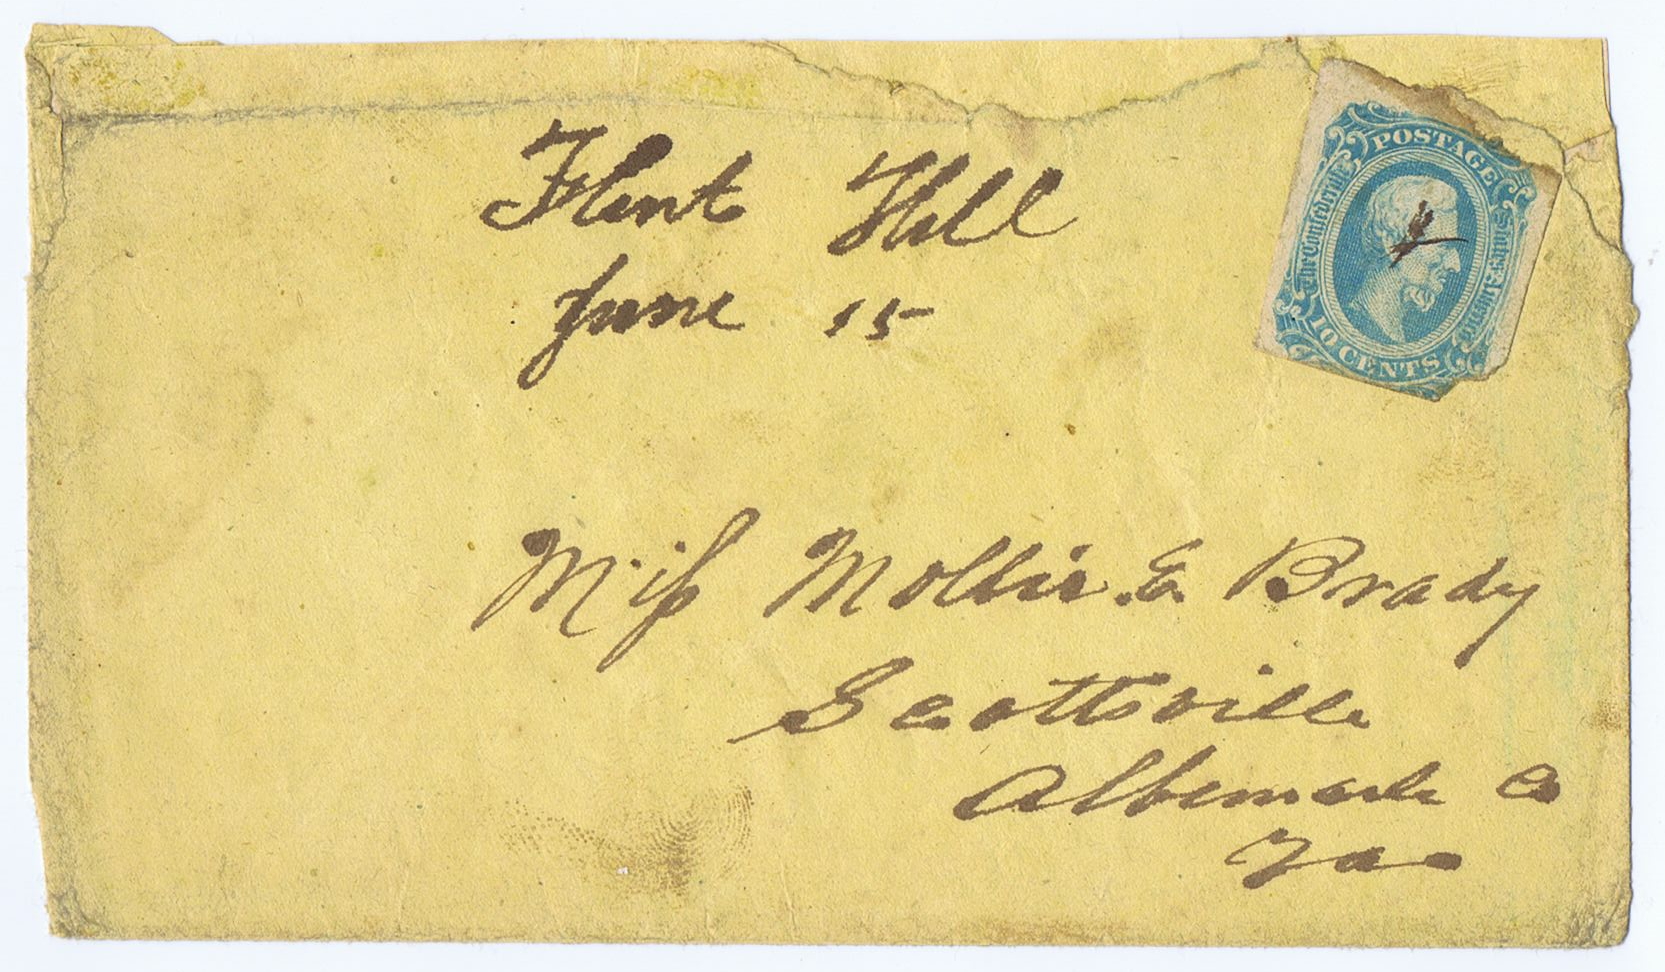 Flint Hill
June 15
POSTAGE
The Confederate States of America
10 CENTS
Miſs Mollie. E. Brady
Scottsville
Albemarle Co
Va